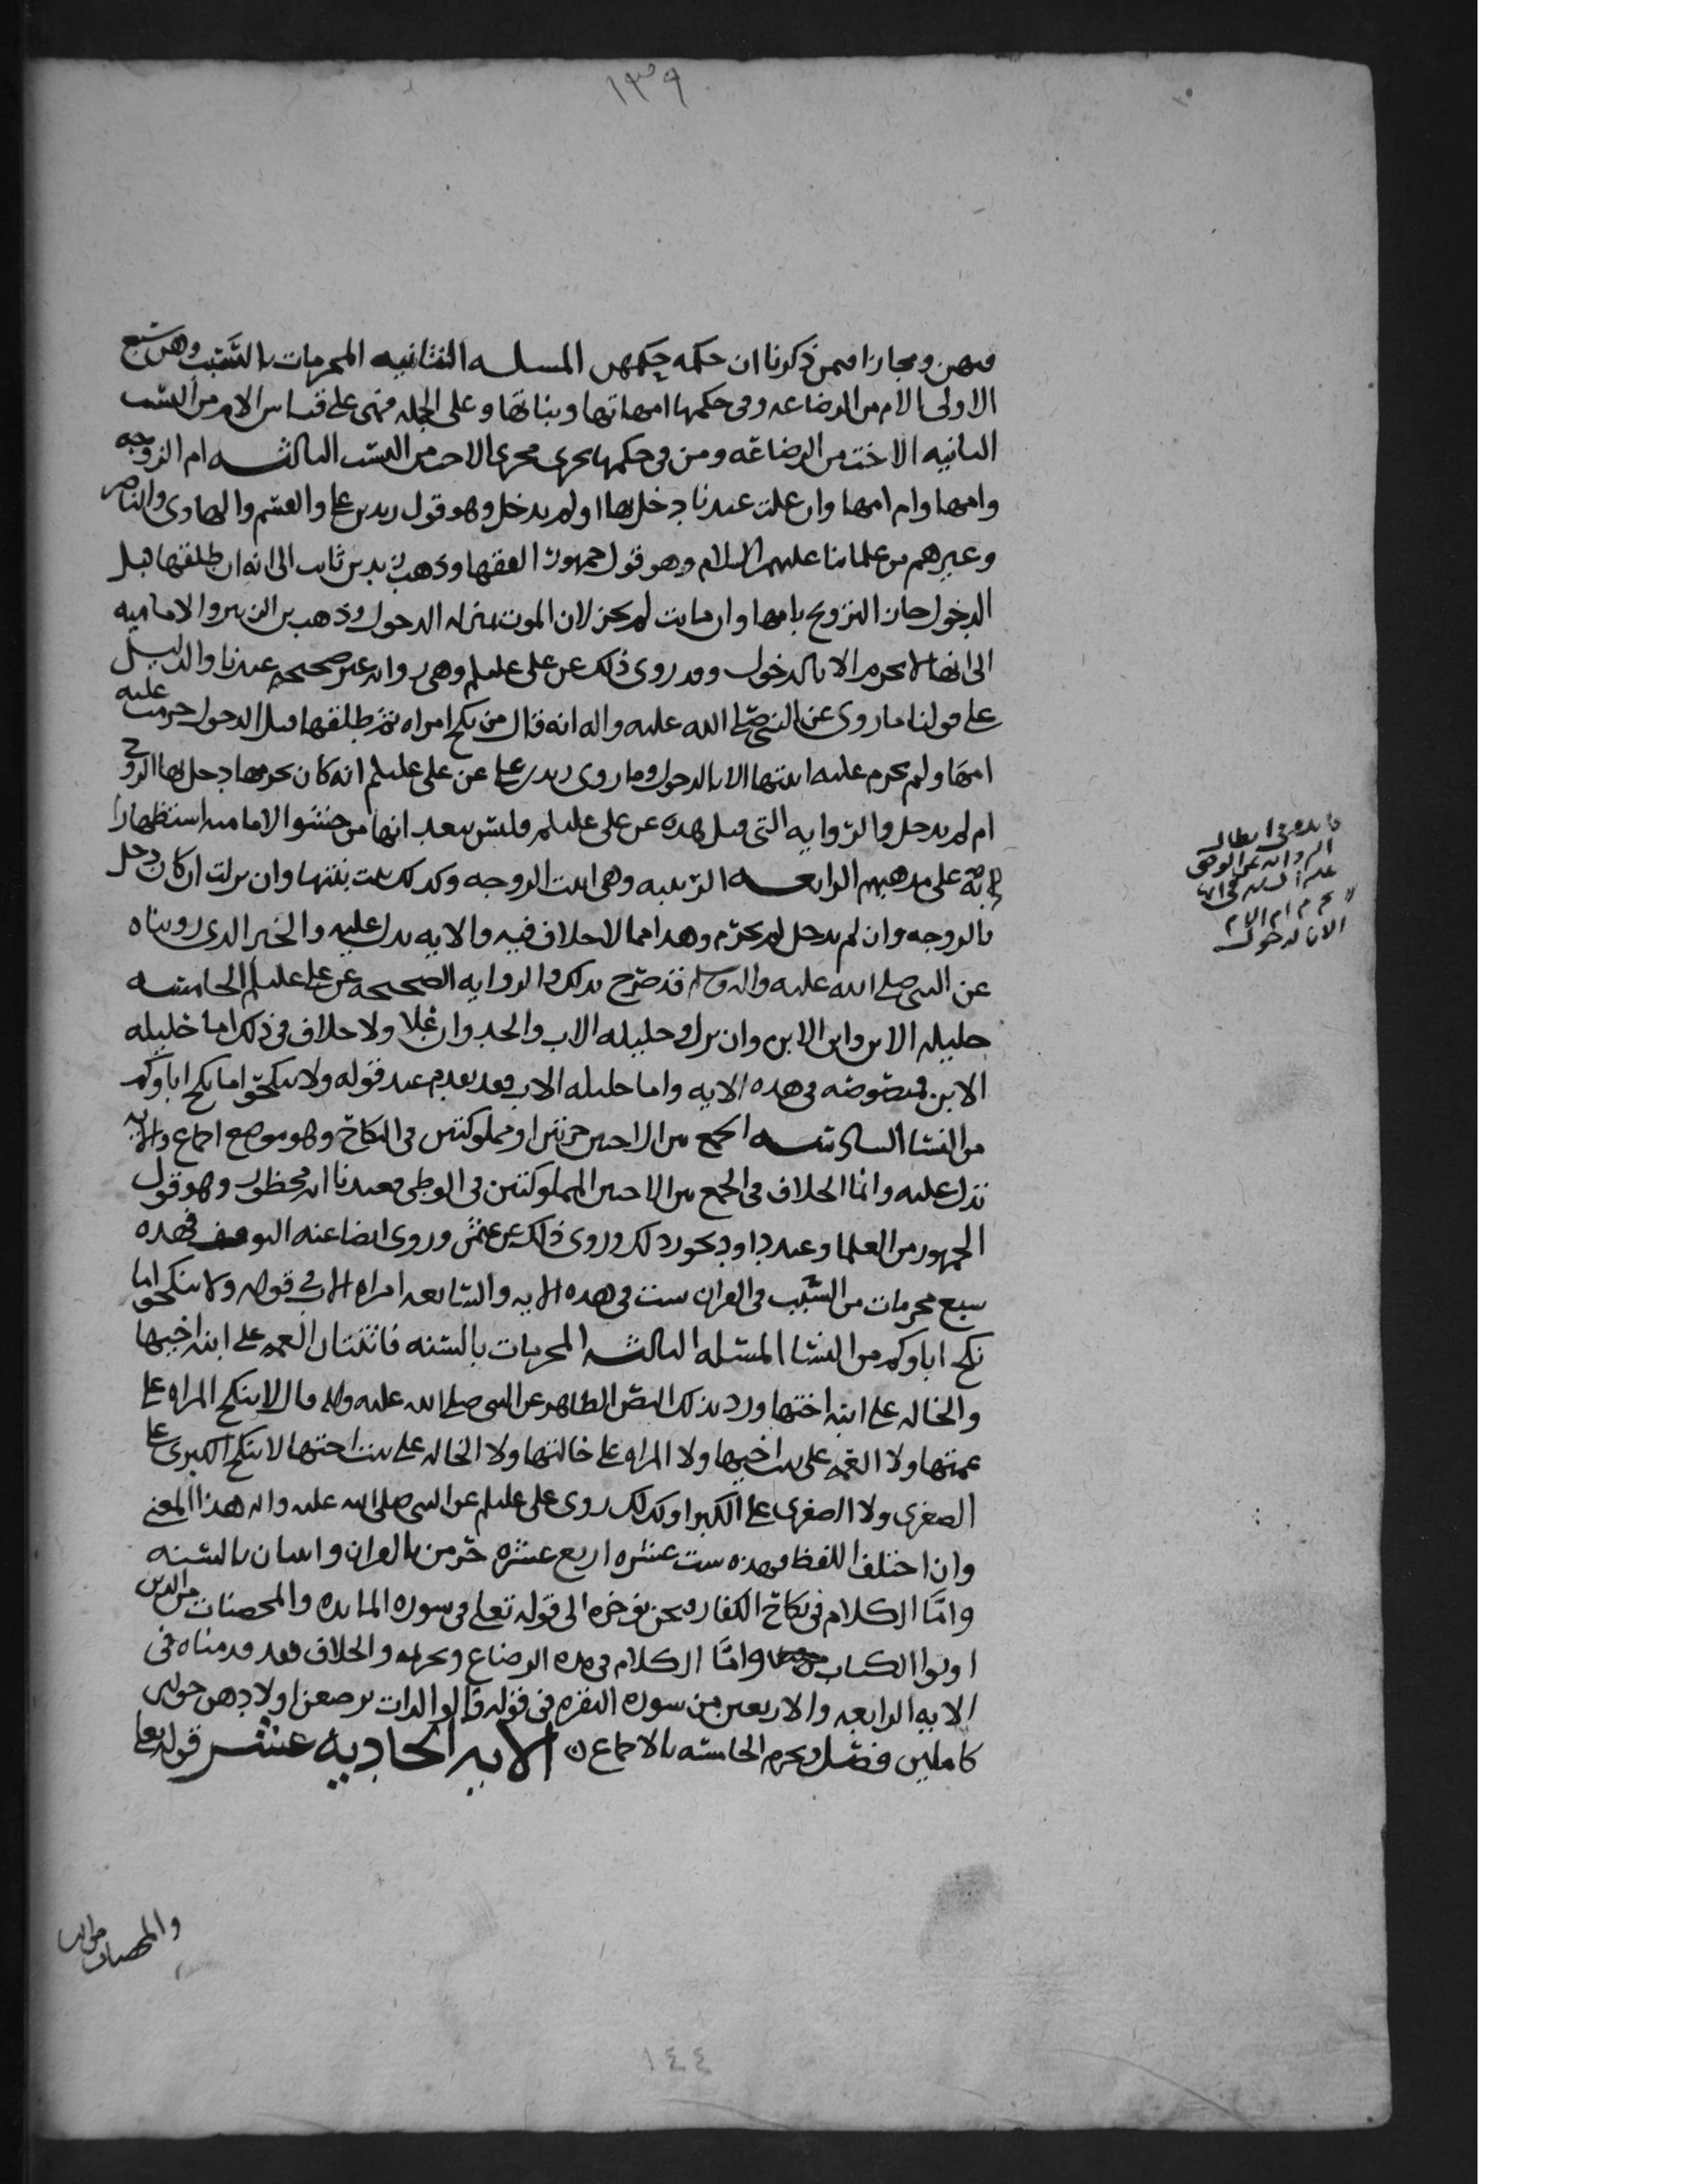 ١٣٩
فيهن ومجازا فيمن ذكرنا ان حكمه حكمهن المسله الثانيه المحرمات بالسبب وهن سبع
الاولى الام من الرضاعه وفى حكمها امهاتها وبناتها وعلى الجمله فهى على قياس الام من النسب
الثانيه الاخت من الرضاعه ومن فى حكمها يجرى مجرى الاخت من النسب الثالثه ام الزوجه
وامها وام امها وان علت عندنا دخل بها او لم يدخل وهو قول زيد بن على والقسم والهادى والناصر
وغيرهم من علمائنا عليهم السلام وهو قول جمهور الفقها وذهب زيد بن ثابت الى انه ان طلقها قبل
الدخول جاز التزويج بامها وان ماتت لم يجز لان الموت بمنزله الدخول وذهب بن الزبير والاماميه
الى انها لا تحرم الا بالدخول وقد روى ذلك عن على عليلم وهى روايه غير صحيحه عندنا والدليل
على قولنا ما روى عن النبى صلى الله عليه واله انه قال من نكح امراه ثم طلقها قبل الدخول حرمت عليه
امها ولم يحرم عليه ابنتها الا بالدخول وما روى زيد بن على عن على عليلم انه كان يحرمها دخل بها الزوج
ام لم يدخل والروايه التى قبل هذه عن على عليلم فليس ببعد انها من حشو الاماميه استظهارا
به على مذهبهم الرابعه الربيبه وهى ابنت الزوجه وكذلك بنت بنتها وان نزلت ان كان دخل
بالزوجه وان لم يدخل لم تحرم وهذا مما لا خلاف فيه والايه تدل عليه والخبر الذى رويناه
عن النبى صلى الله عليه واله وسلم قد صرح بذلك والروايه الصحيحه عن على عليلم الخامسه
حليله الابن وابن الابن وان نزل وحليله الاب والجد وان علا ولا خلاف فى ذلك اما حليله
الابن فمنصوصه فى هذه الايه واما حليله الاب فقد تقدم عند قوله ولا تنكحوا ما نكح اباوكم
من النسا السادسه الجمع بين الاختين حرتين او مملوكتين فى النكاح وهو موضع اجماع والايه
تدل عليه وانما الخلاف فى الجمع بين الاختين المملوكتين فى الوطى فعندنا انه محظور وهو قول
الجمهور من العلما وعند داود يجوز ذلك وروى ذلك عن عثمن وروى ايضا عنه التوقف فهذه
سبع محرمات من السبب فى القران ست فى هذه الايه والسابعه امراه الاب فى قوله ولا تنكحوا ما
نكح اباوكم من النسا المسله الثالثه المحرمات بالسنه فاثنتان العمه على ابنه اخيها
والخاله على ابنه اختها ورد بذلك النص الظاهر عن النبى صلى الله عليه واله قال لا تنكح المراه على
عمتها ولا العمه على بنت اخيها ولا المراه على خالتها ولا الخاله على بنت اختها لا تنكح الكبرى على
الصغرى ولا الصغرى على الكبرا وكذلك روى على عليلم عن النبى صلى الله عليه واله هذا المعنى
وان اختلف اللفظ فهذه ست عشره اربع عشره حرمن بالقران واثنتان بالسنه
واما الكلام فى نكاح الكفار فنحن نوخره الى قوله تعلى فى سوره المايده والمحصنات من الذين
اوتوا الكتاب واما الكلام فى مده الرضاع وتحريمه والخلاف فقد قدمناه فى
الايه الرابعه والاربعين من سوره البقره فى قوله والوالدات يرضعن اولادهن حولين
كاملين فصل وتحرم الخامسه بالاجماع الايه الحاديه عشر قوله تعلى
فايده فى ابطال
الروايه عن الوصى
عليه السلم فى انها
لا تحرم ام الام
الا بالدخول
والمحصنات من النسا
١٤٤